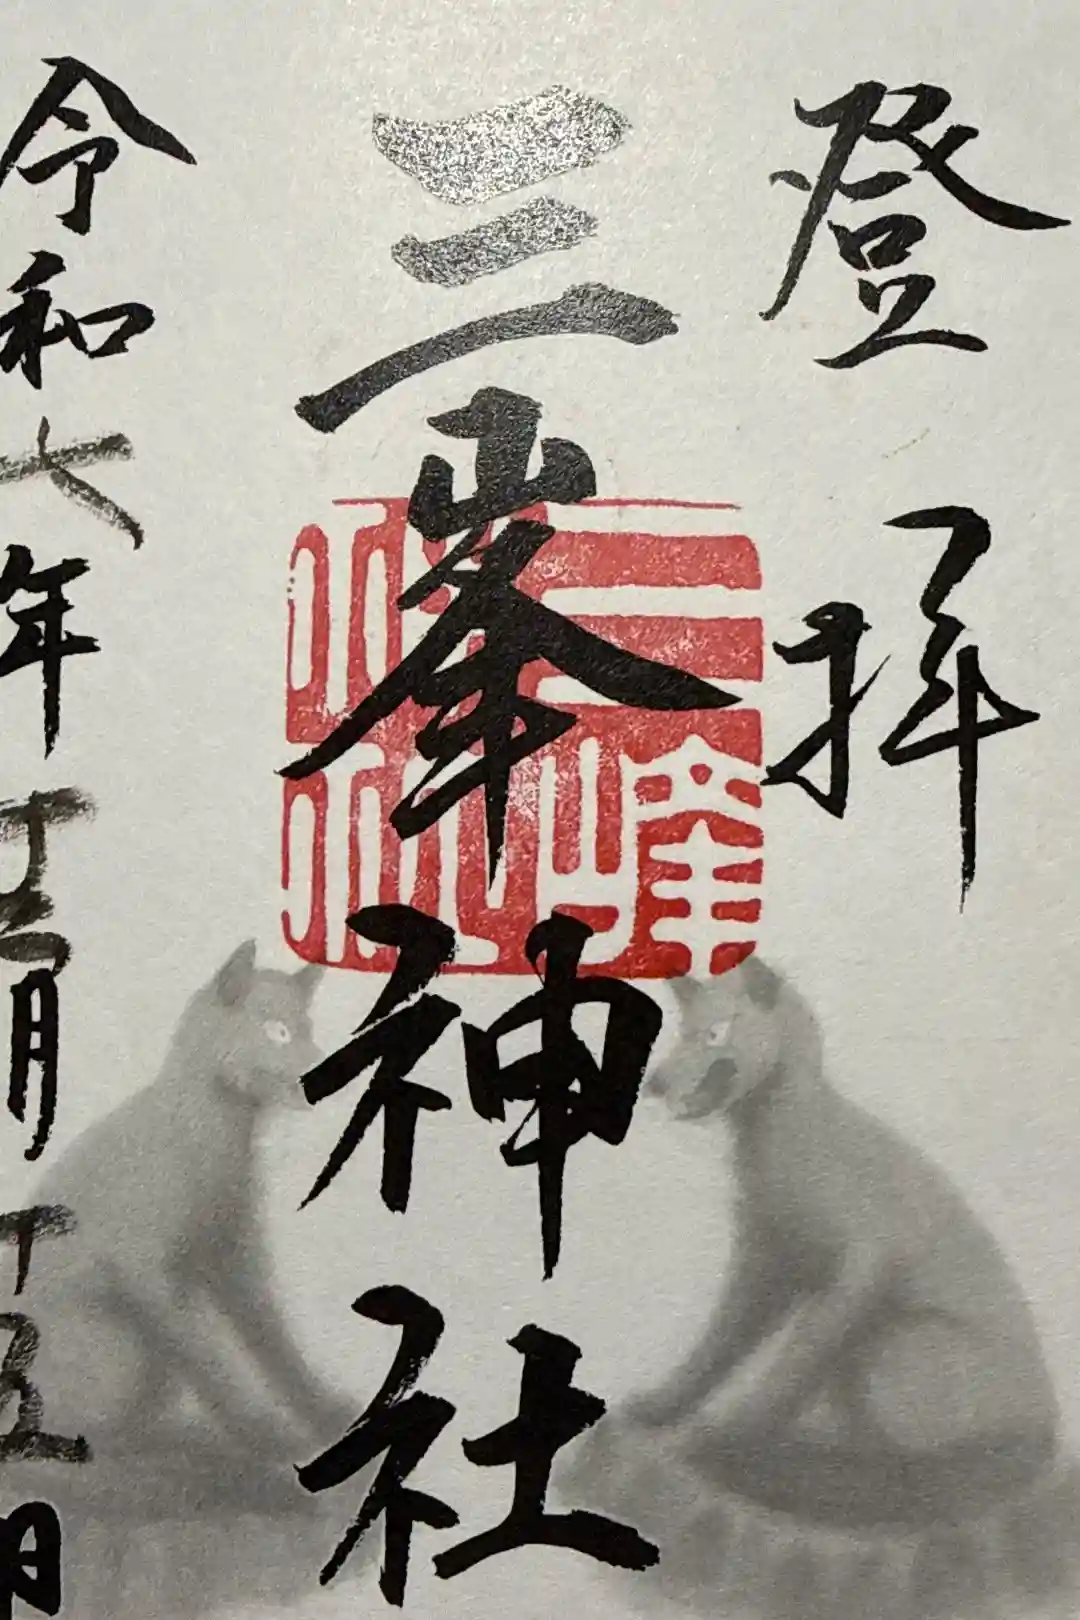 登拝
三峯神社
三峰
神社
令和六年十二月十五日